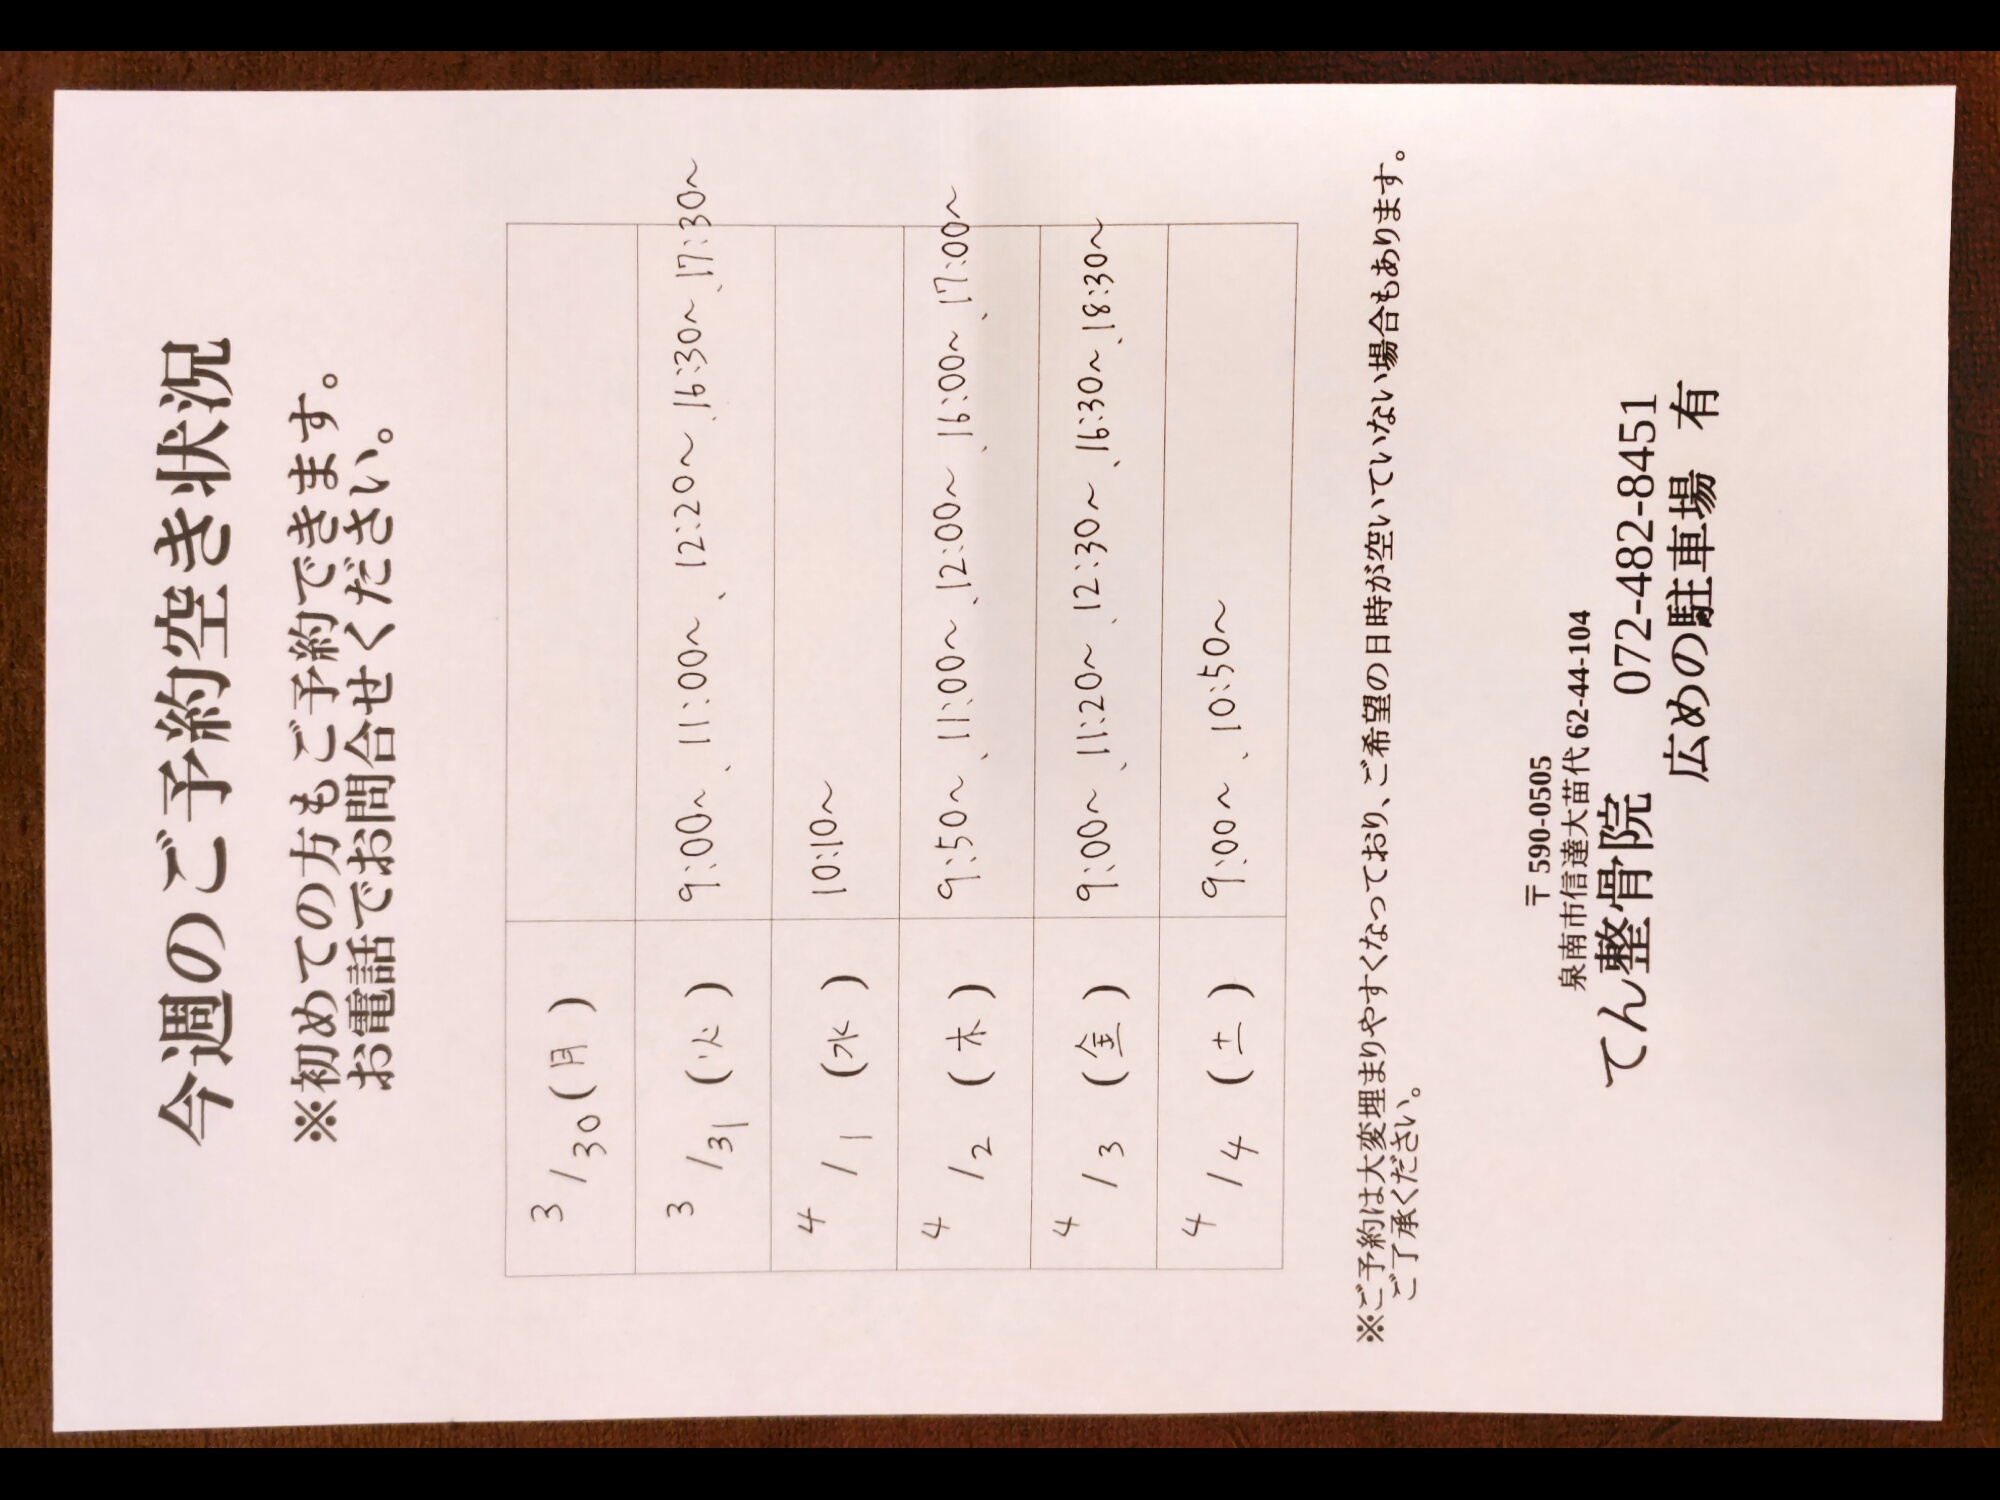 今週のご予約空き状況
※初めての方もご予約できます。
お電話でお問合せください。
3/30(月)
3/31(火) 9:00〜、11:00〜、12:20〜、16:30〜、17:30〜
4/1(水) 10:10〜
4/2(木) 9:50〜、11:00〜、12:00〜、16:00〜、17:00〜
4/3(金) 9:00〜、11:20〜、12:30〜、16:30〜、18:30〜
4/4(土) 9:00〜、10:50〜
※ご予約は大変埋まりやすくなっており、ご希望の日時が空いていない場合もあります。
ご了承ください。
〒590-0505
泉南市信達大苗代62-44-104
てん整骨院 072-482-8451
広めの駐車場 有